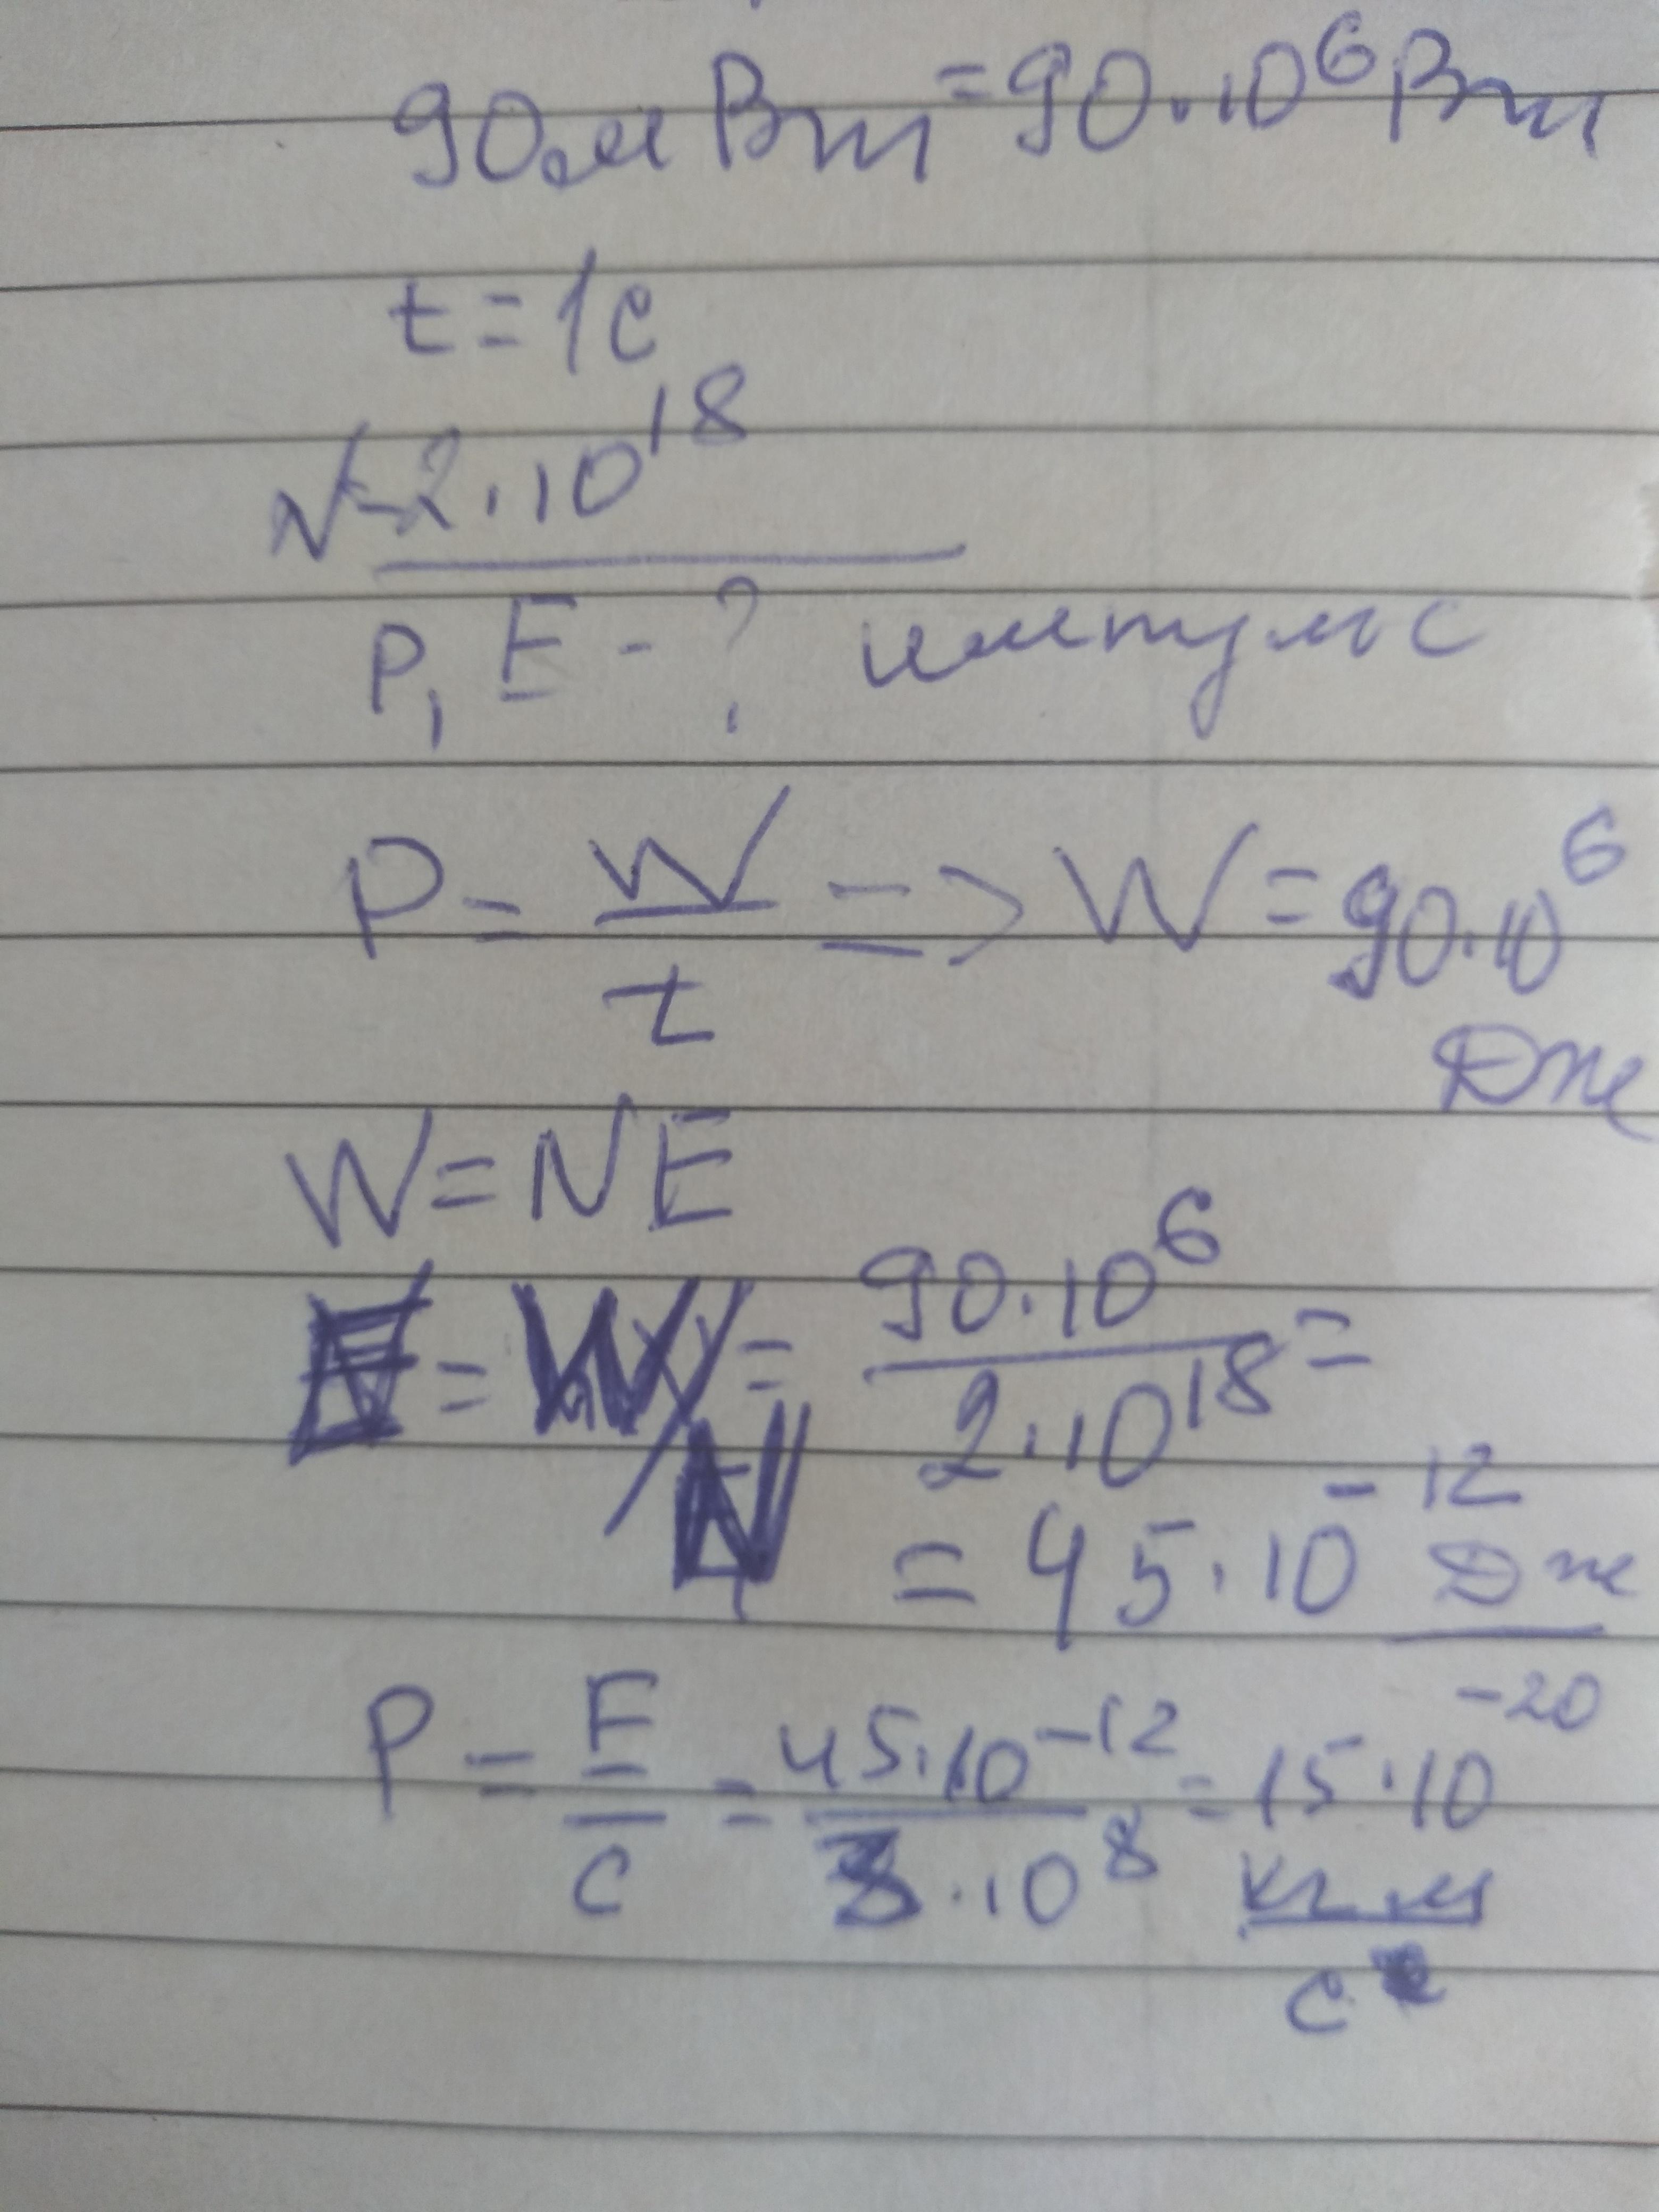 90 м Вт = 90 · 10⁶ Вт
t = 1с
N - 2 · 10¹⁸
P, E - ? импулс
P = W/t => W = 90 · 10⁶
Дж
W = NE
E = W/N = 90 · 10⁶ / 2 · 10¹⁸ =
= 45 · 10⁻¹² Дж
P = E/c = 45 · 10⁻¹² / 3 · 10⁸ = 15 · 10⁻²⁰
кг м/с